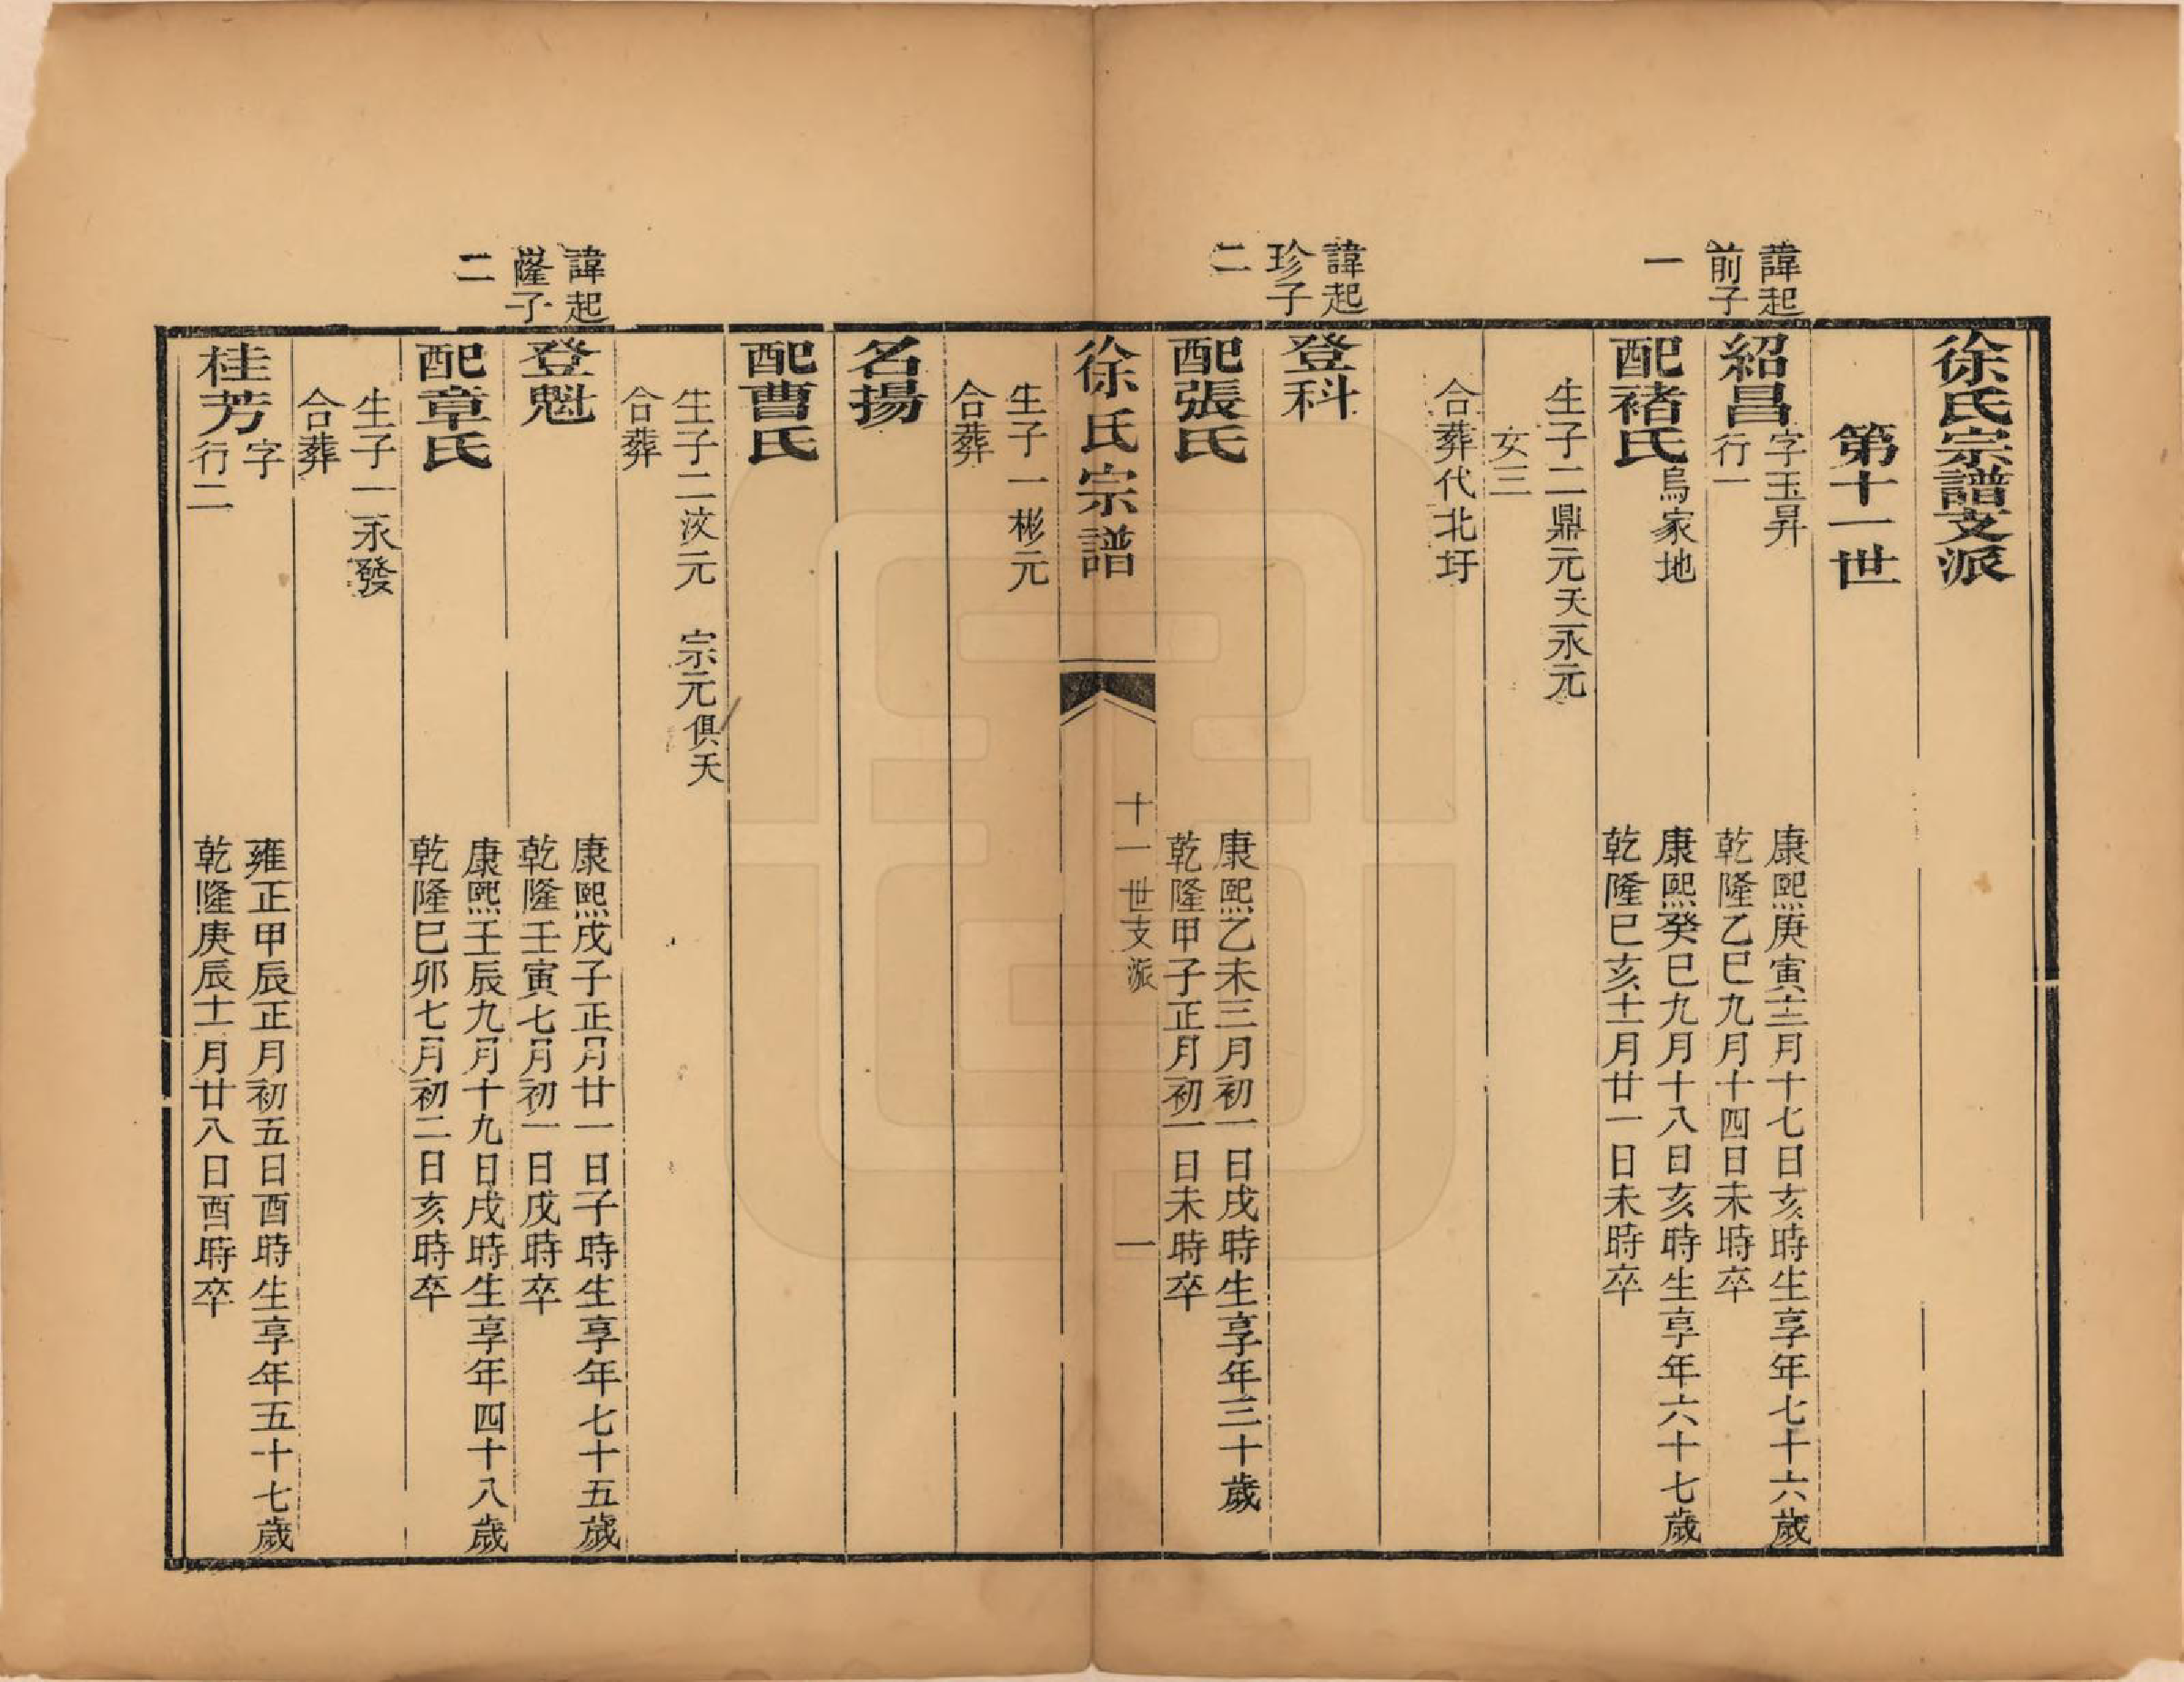 徐氏宗譜支派
第十一世
諱起
前子
一
紹昌
字玉昇
行一
康熙庚寅十二月十七日亥時生享年七十六歲
乾隆乙巳九月十四日未時卒
配褚氏
烏家地
康熙癸巳九月十八日亥時生享年六十七歲
乾隆巳亥十一月廿一日未時卒
生子二鼎元夭永元
女三
合葬代北圩
諱起
珍子
二
登科
配張氏
康熙乙未三月初一日戌時生享年三十歲
乾隆甲子正月初一日未時卒
徐氏宗譜
十一世支派
一
生子一彬元
合葬
名揚
配曹氏
生子二汶元 宗元俱夭
合葬
諱起
隆子
二
登魁
康熙戊子正月廿一日子時生享年七十五歲
乾隆壬寅七月初一日戌時卒
配章氏
康熙壬辰九月十九日戌時生享年四十八歲
乾隆巳卯七月初二日亥時卒
生子一永發
合葬
桂芳
字
行二
雍正甲辰正月初五日酉時生享年五十七歲
乾隆庚辰十一月廿八日酉時卒